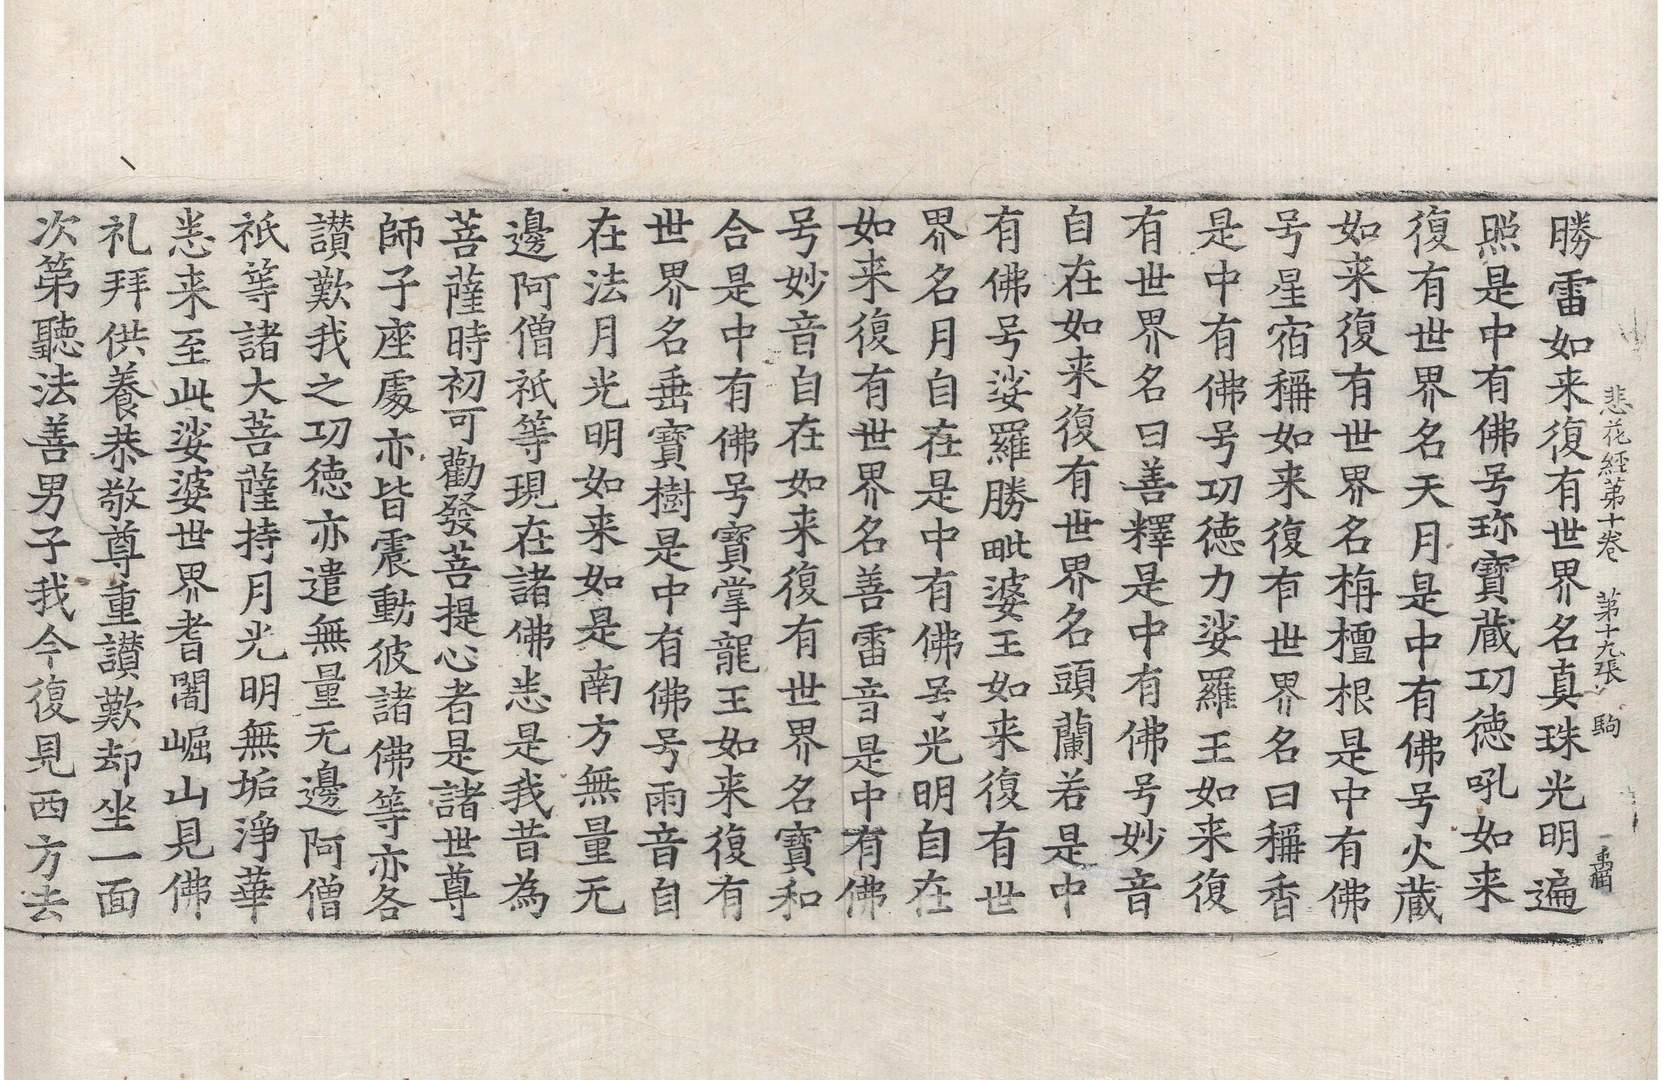 悲花経苐十卷　苐十九張　駒
勝雷如来復有世界名真珠光明遍
照是中有佛号珎寶蔵功徳吼如来
復有世界名天月是中有佛号火蔵
如来復有世界名栴檀根是中有佛
号星宿稱如来復有世界名曰稱香
是中有佛号功徳力娑羅王如来復
有世界名曰善釋是中有佛号妙音
自在如来復有世界名頭蘭若是中
有佛号娑羅勝毗婆王如来復有世
界名月自在是中有佛号光明自在
如来復有世界名善雷音是中有佛
号妙音自在如来復有世界名寶和
合是中有佛号寶掌龍王如来復有
世界名垂寶樹是中有佛号雨音自
在法月光明如来如是南方無量无
邊阿僧祇等現在諸佛悉是我昔為
菩薩時初可勸發菩提心者是諸世尊
師子座處亦皆震動彼諸佛等亦各
讃歎我之功徳亦遣無量无邊阿僧
祇等諸大菩薩持月光明無垢淨華
悉来至此娑婆世界耆闍崛山見佛
礼拜供養恭敬尊重讃歎却坐一面
次第聽法善男子我今復見西方去